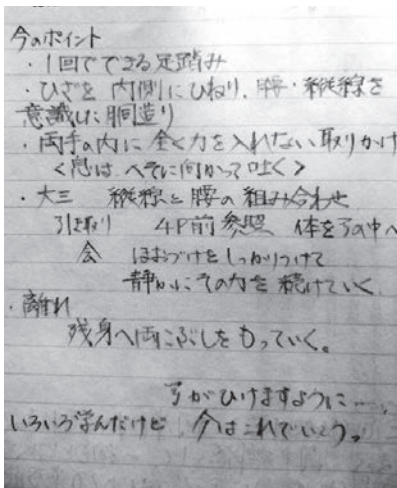 今のポイント
・1回でできる足踏み
・ひざを内側にひねり、腰・縦線を
意識した胴造り
・両手の内に全く力を入れない取りかけ
<息は、へそに向かって吐く>
・大三 縦線と腰の組み合わせ
引き取り 4P前参照 体を弓の中へ
会 ほおづけをしっかりつけて
静かにその力を続けていく
・離れ
残身へ両こぶしをもっていく。
弓がひけますように…。
いろいろ学んだけど 今はこれでいこうっ